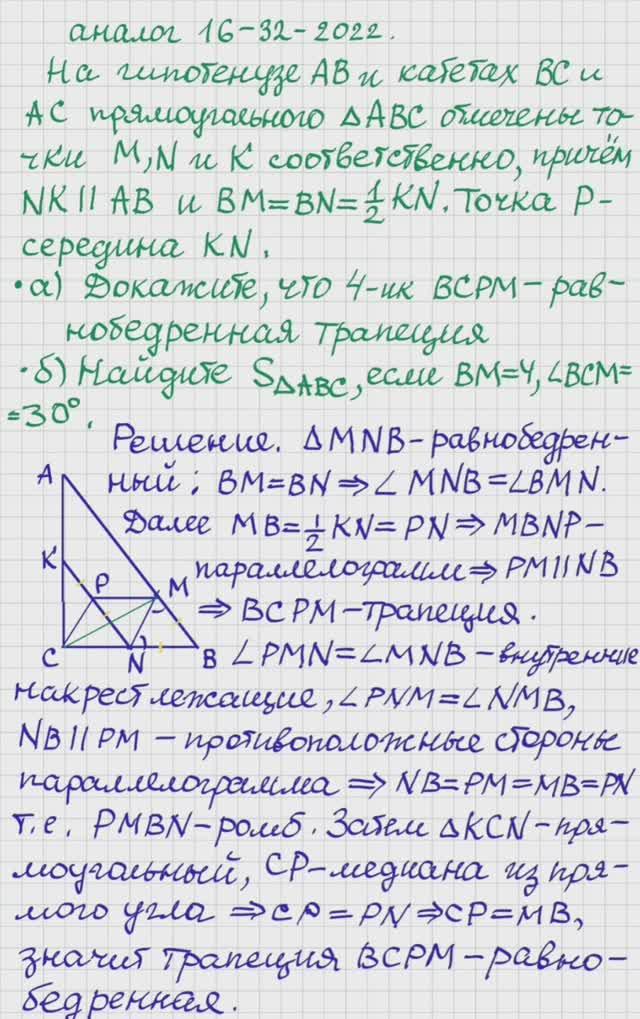 аналог 16-32-2022.
На гипотенузе AB и катетах BC и
AC прямоугольного △ABC отмечены то-
чки M, N и K соответственно, причём
NK || AB и BM=BN=1/2 KN. Точка P-
середина KN.
•а) Докажите, что 4-ик BCPM - рав-
нобедренная трапеция
•б) Найдите S△ABC, если BM=4, ∠BCM=
=30°.
Решение. △MNB - равнобедрен-
ный; BM=BN ⇒ ∠MNB = ∠BMN.
Далее MB = 1/2 KN = PN ⇒ MBNP -
параллелограмм ⇒ PM || NB
⇒ BCPM - трапеция.
∠PMN = ∠MNB - внутренние
накрест лежащие, ∠PNM = ∠NMB,
NB || PM - противоположные стороны
параллелограмма ⇒ NB=PM=MB=PN
т.е. PMBN - ромб. Затем △KCN - пря-
моугольный, CP - медиана из пря-
мого угла ⇒ CP = PN ⇒ CP = MB,
значит трапеция BCPM - равно-
бедренная.
A
K
P
M
C
N
B